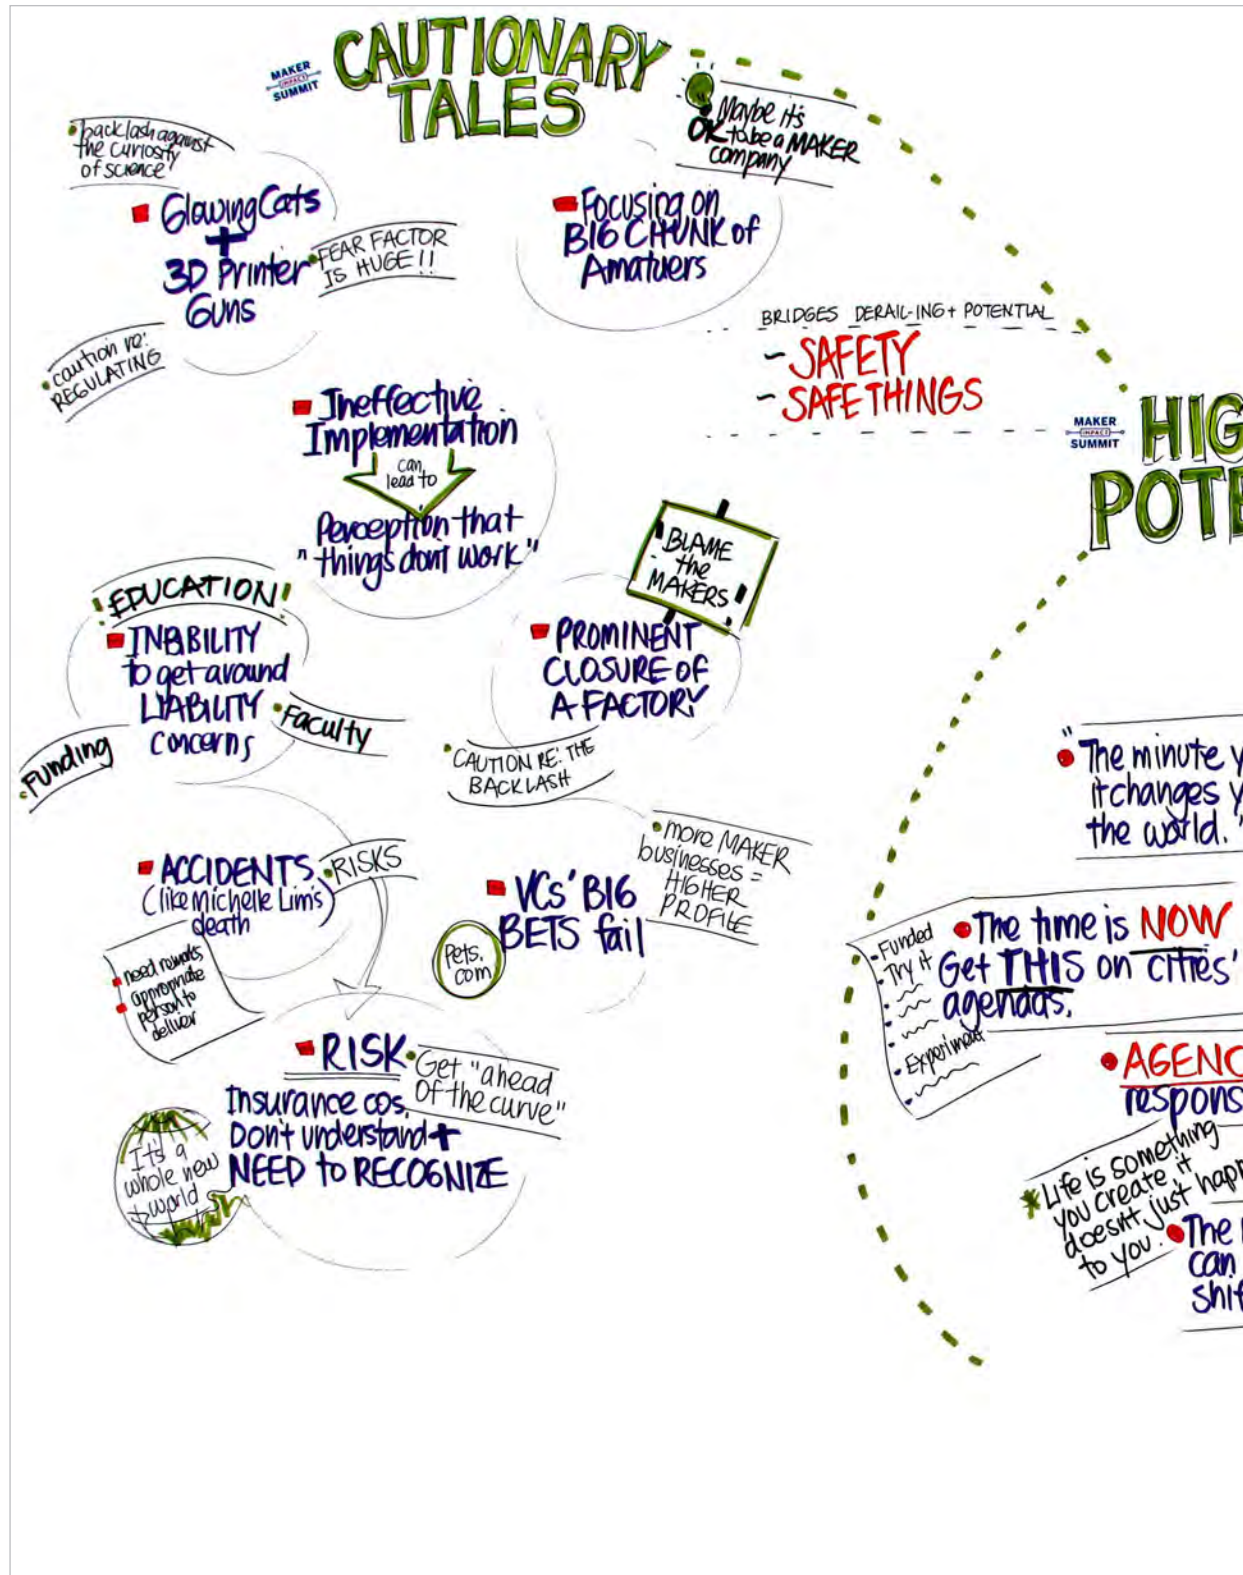 MAKER
IMPACT
SUMMIT
CAUTIONARY
TALES
Maybe it's
OK to be a MAKER
company
backlash against
the curiosity
of science
Glowing Cats
+
3D Printer
Guns
FEAR FACTOR
IS HUGE!!
caution re:
REGULATING
Focusing on
BIG CHUNK of
Amatuers
BRIDGES DERAIL-ING + POTENTIAL
- SAFETY
- SAFE THINGS
Ineffective
Implementation
can
lead to
Perception that
"things don't work"
BLAME
the
MAKERS
EDUCATION
INABILITY
to get around
LIABILITY
concerns
Funding
Faculty
PROMINENT
CLOSURE OF
A FACTORY
CAUTION RE: THE
BACKLASH
ACCIDENTS
(like Michelle Lim's
death)
RISKS
appropriate
person to
deliver
VCs' BIG
BETS fail
Pets.
com
more MAKER
businesses =
HIGHER
PROFILE
RISK
Insurance cos.
Don't understand +
NEED to RECOGNIZE
Get "ahead
Of the curve"
It's a
whole new
world
MAKER
IMPACT
SUMMIT
HIG
POTE
"The minute y
it changes y
the world."
The time is NOW
Get THIS on cities'
agendas.
Funded
Try it
Experiment
AGENC
respons
Life is something
you create, it
doesn't just happ
to you.
The
can
shif